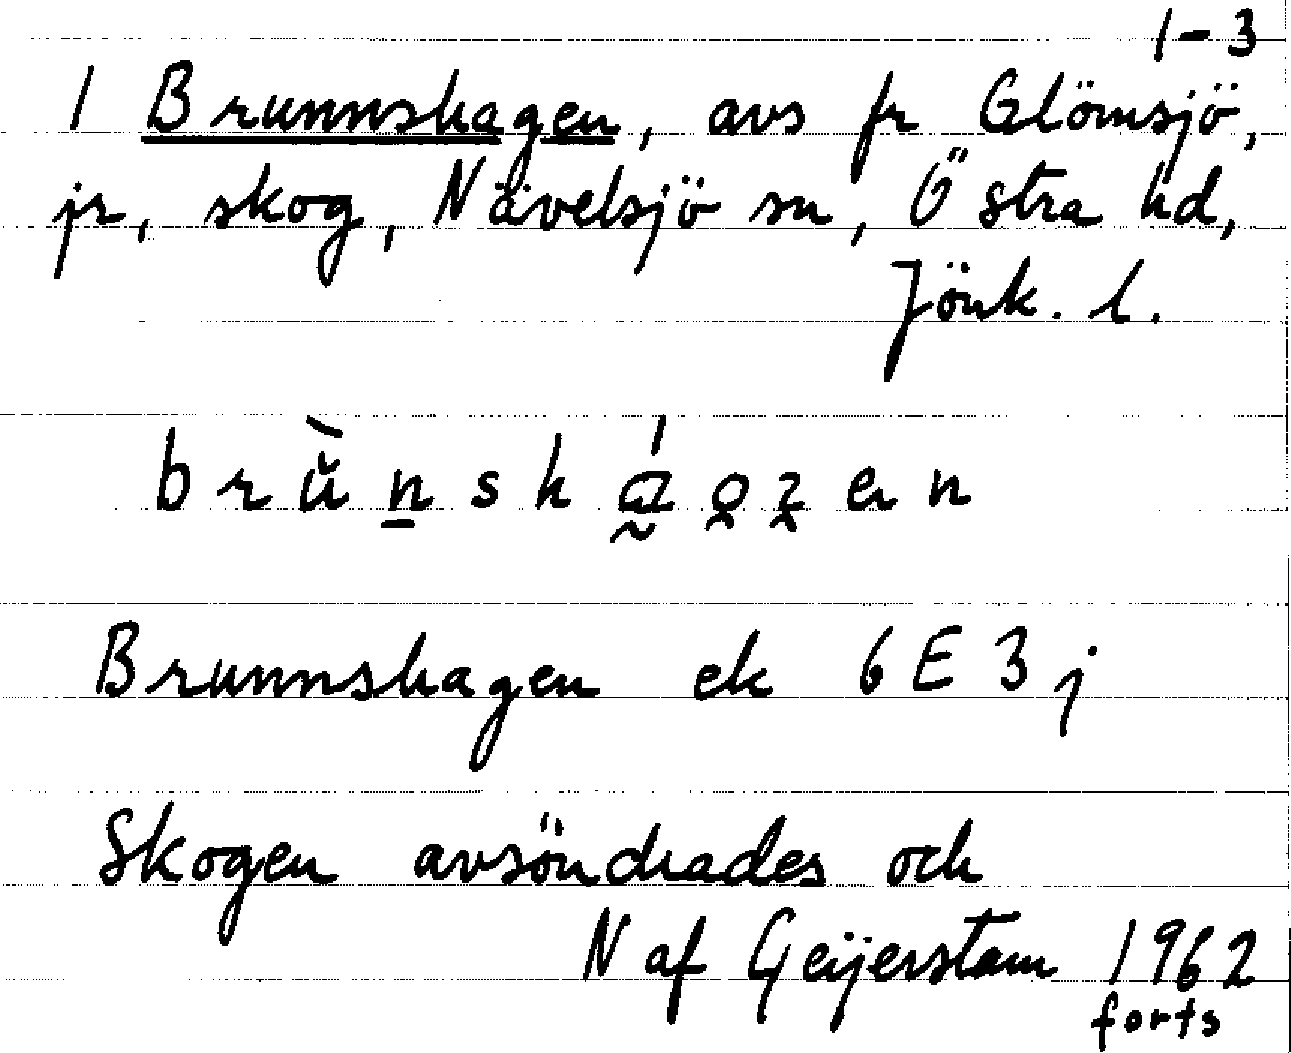 1-3
1 Brunnshagen, avs fr Glömsjö,
jr, skog, Nävelsjö sn, Östra hd,
Jönk. l.
Brunnshagen ek 6E3j
Skogen avsöndrades och
N af Geijerstam 1962
forts